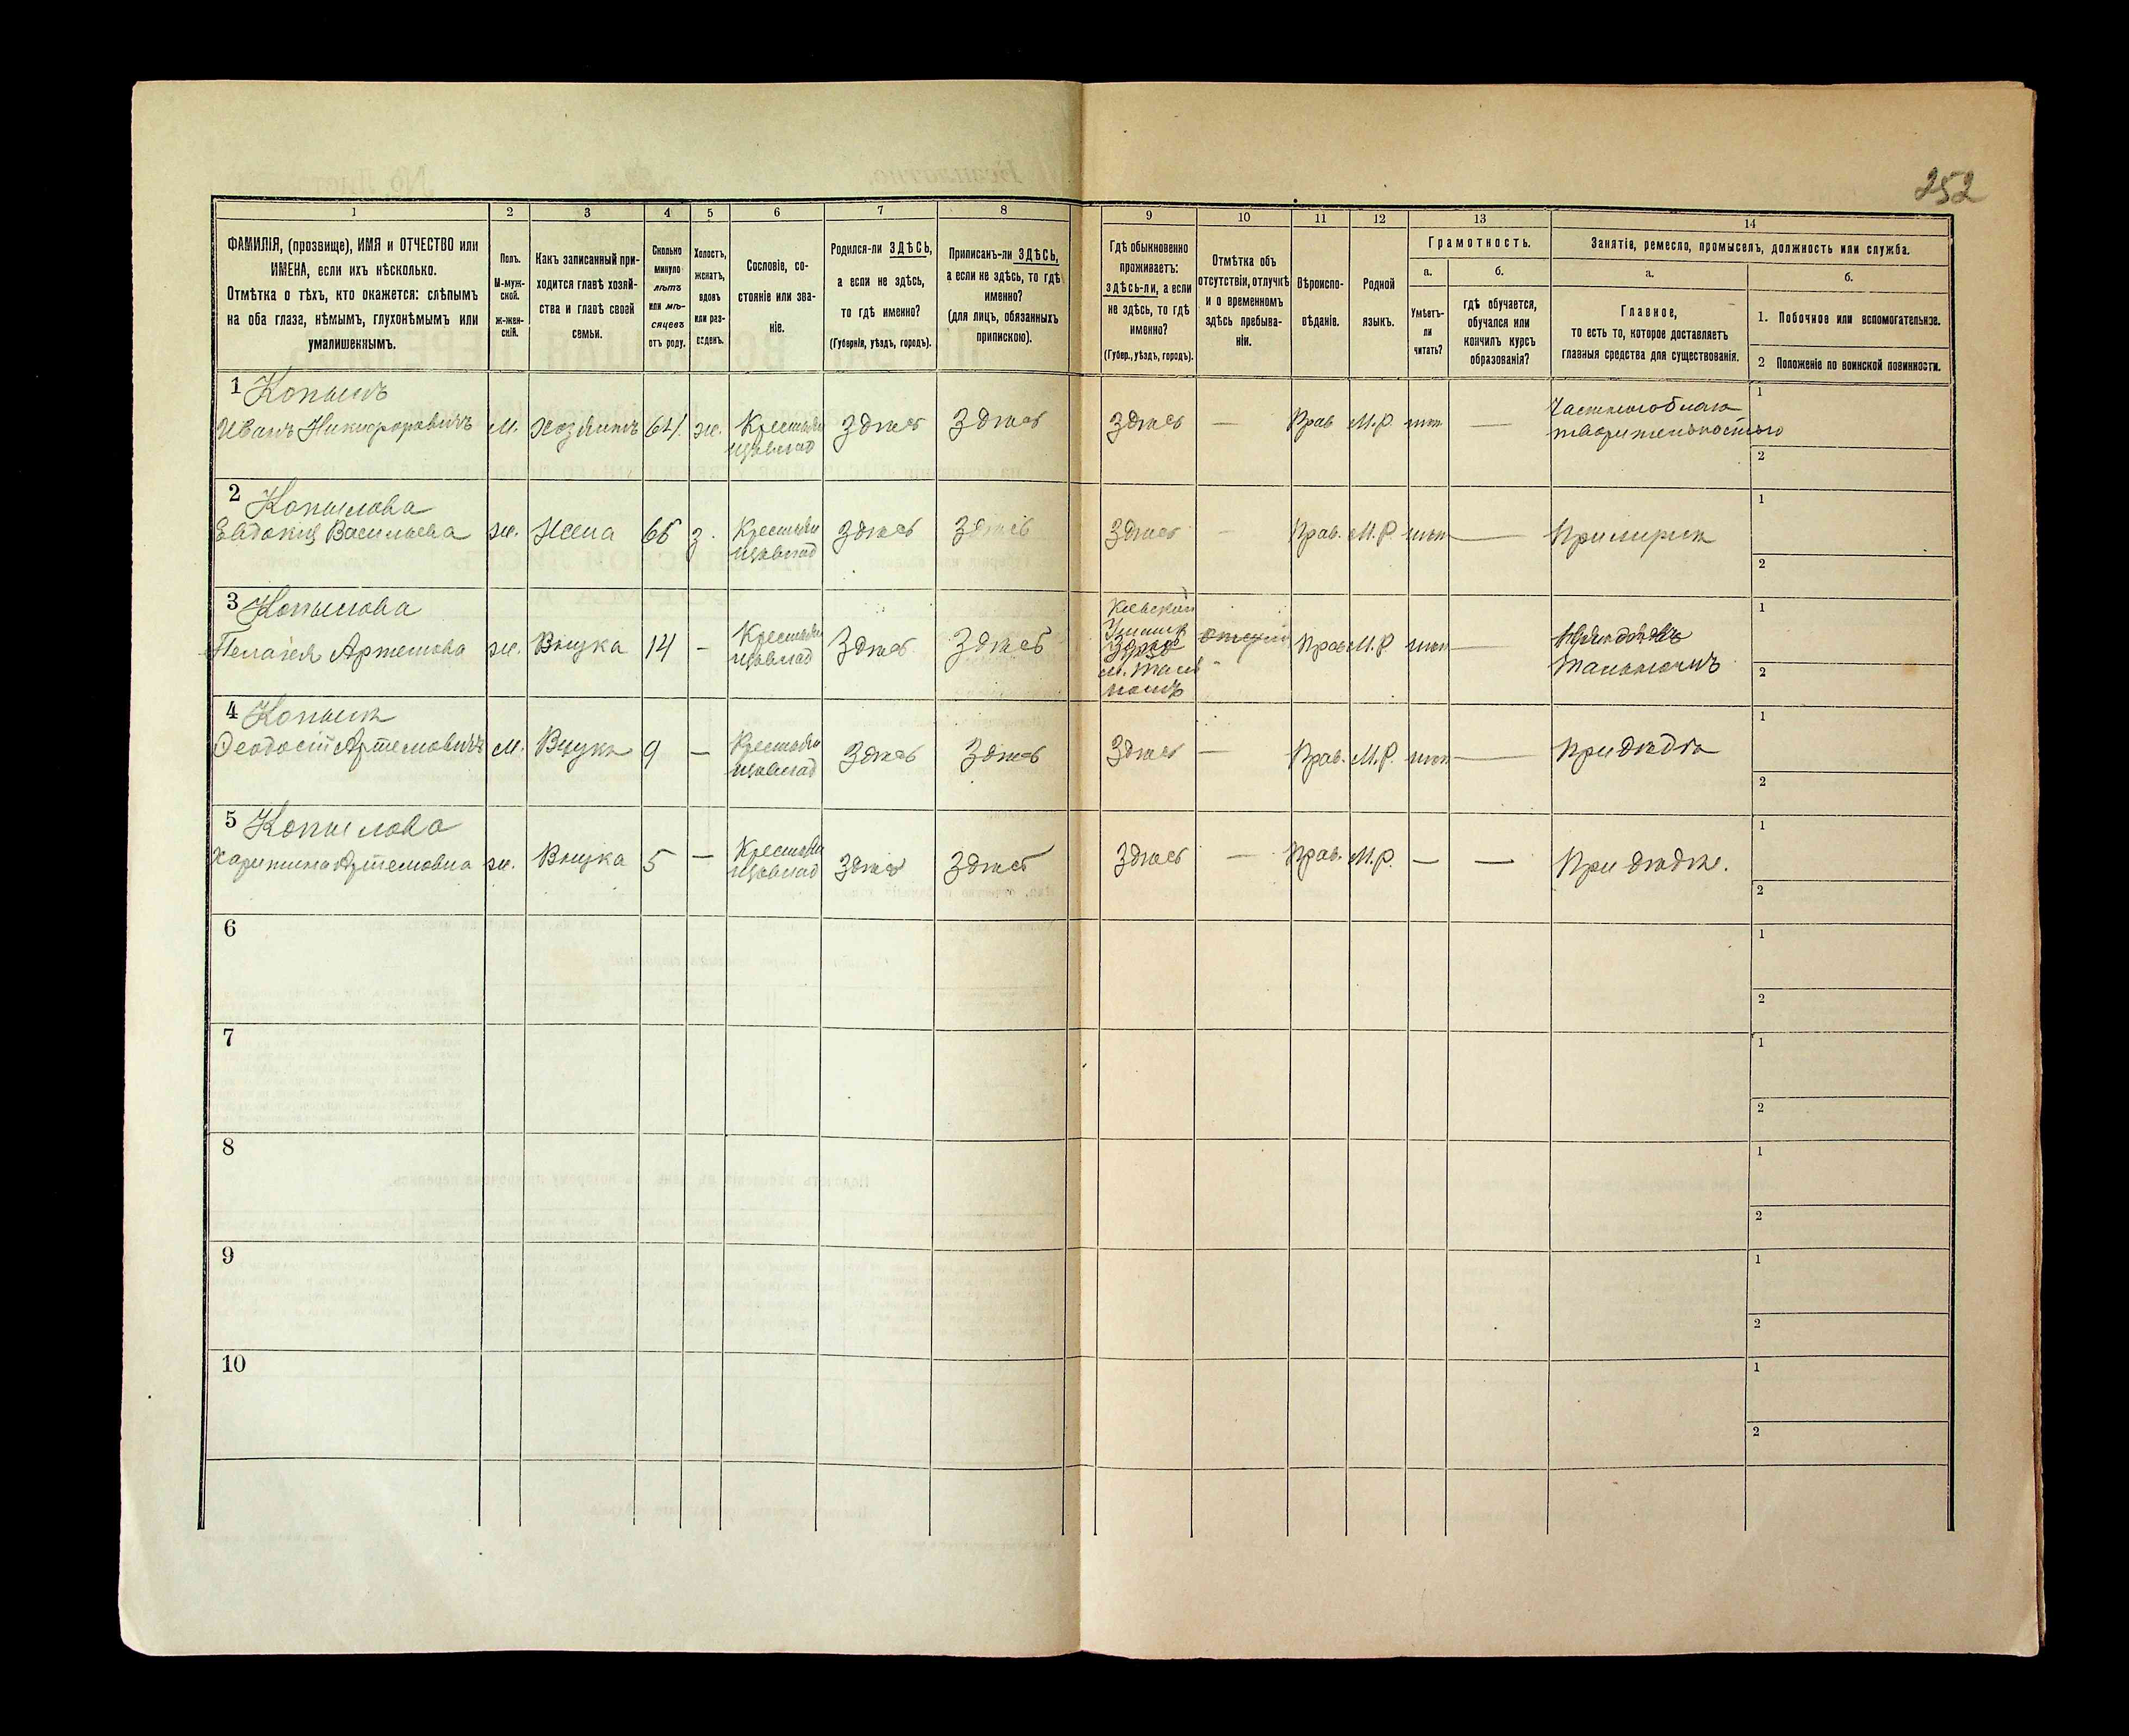 252
1 2 3 4 5 6 7 8 9 10 11 12 13 14
ФАМИЛІЯ, (прозвище), ИМЯ и ОТЧЕСТВО или
ИМЕНА, если ихъ нѣсколько.
Отмѣтка о тѣхъ, кто окажется: слѣпымъ
на оба глаза, нѣмымъ, глухонѣмымъ или
умалишеннымъ.
Полъ.
М-муж-
ской.
Ж-жен-
скій.
Какъ записанный при-
ходится главѣ хозяй-
ства и главѣ своей
семьи.
Сколько
минуло
лѣтъ
или мѣ-
сяцевъ
отъ роду.
Холостъ,
женатъ,
вдовъ
или раз-
веденъ.
Сословіе, со-
стояніе или зва-
ніе.
Родился-ли ЗДѢСЬ,
а если не здѣсь,
то гдѣ именно?
(Губернія, уѣздъ, городъ).
Приписанъ-ли ЗДѢСЬ,
а если не здѣсь, то гдѣ
именно?
(для лицъ, обязанныхъ
припискою).
Гдѣ обыкновенно
проживаетъ:
здѣсь-ли, а если
не здѣсь, то гдѣ
именно?
(Губер., уѣздъ, городъ).
Отмѣтка объ
отсутствіи, отлучкѣ
и о временномъ
здѣсь пребыва-
ніи.
Вѣроиспо-
вѣданіе.
Родной
языкъ.
Грамотность.
а.
Умѣетъ-
ли
читать?
б.
гдѣ обучается,
обучался или
кончилъ курсъ
образованія?
Занятіе, ремесло, промыселъ, должность или служба.
а.
Главное,
то есть то, которое доставляетъ
главныя средства для существованія.
б.
1. Побочное или вспомогательное.
2 Положеніе по воинской повинности.
1 Копылъ
Иванъ Никифоровичъ м. хозяинъ 64 ж. Крестьян здѣсь здѣсь здѣсь — Прав М.Р. нѣт —
1
2
2 Копылова
Евдокия Васильева ж. жена 66 з. Крестьян здѣсь здѣсь здѣсь - Прав. М.Р. нѣт — При мужѣ
1
2
3 Копылова
Пелагея Артемова ж. Внучка 14 - Крестьян здѣсь здѣсь Кіевской Прав М.Р. нѣт —
1
2
4 Копылъ
Феодосій Артемовичъ м. Внукъ 9 — Крестьян здѣсь здѣсь здѣсь — Прав. М.Р. нѣт — При дѣдѣ
1
2
5 Копылова
Харитина Артемовна ж. Внучка 5 — Крестьян здѣсь здѣсь здѣсь — Прав. М.Р. — — При дѣдѣ.
1
2
6
1
2
7
1
2
8
1
2
9
1
2
10
1
2